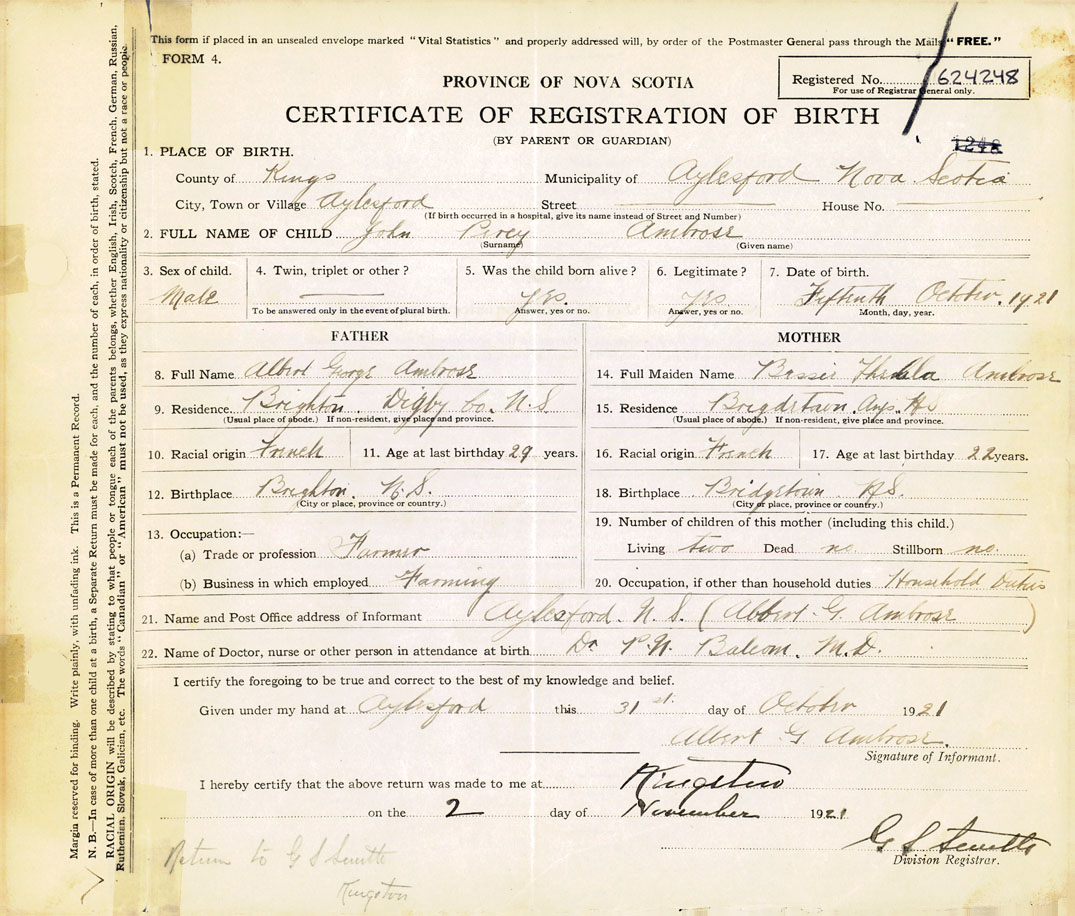 This form if placed in an unsealed envelope marked "Vital Statistics" and properly addressed will, by order of the Postmaster General pass through the Mails "FREE."
FORM 4.
PROVINCE OF NOVA SCOTIA
Registered No. 624248
For use of Registrar General only.
CERTIFICATE OF REGISTRATION OF BIRTH
(BY PARENT OR GUARDIAN)
1248
1. PLACE OF BIRTH.
County of Kings Municipality of Aylesford Nova Scotia
City, Town or Village Aylesford Street House No.
(If birth occurred in a hospital, give its name instead of Street and Number)
2. FULL NAME OF CHILD John Percy Ambrose
(Surname) (Given name)
3. Sex of child. 4. Twin, triplet or other? 5. Was the child born alive? 6. Legitimate? 7. Date of birth.
Male Yes. Yes Fifteenth October. 1921
To be answered only in the event of plural birth. Answer, yes or no. Answer, yes or no. Month, day, year.
FATHER MOTHER
8. Full Name Albert George Ambrose 14. Full Maiden Name Bessie Ambrose
9. Residence Brighton. Digby Co. N.S 15. Residence
(Usual place of abode.) If non-resident, give place and province. (Usual place of abode.) If non-resident, give place and province.
10. Racial origin French 11. Age at last birthday 29 years. 16. Racial origin French 17. Age at last birthday 22 years.
12. Birthplace Brighton. N.S. 18. Birthplace Bridgetown NS.
(City or place, province or country.) (City or place, province or country.)
13. Occupation:— 19. Number of children of this mother (including this child.)
(a) Trade or profession Farmer Living two Dead no Stillborn no.
(b) Business in which employed Farming 20. Occupation, if other than household duties Household Duties
21. Name and Post Office address of Informant Aylesford. N.S. (Albert G. Ambrose)
22. Name of Doctor, nurse or other person in attendance at birth Dr Balcom. M.D.
I certify the foregoing to be true and correct to the best of my knowledge and belief.
Given under my hand at Aylesford this 31 st. day of October 1921
Albert G Ambrose.
Signature of Informant.
I hereby certify that the above return was made to me at Kingston
on the 2 day of November 1921
G S Smith
Division Registrar.
Return to G S Smith
Kingston
Margin reserved for binding. Write plainly, with unfading ink. This is a Permanent Record.
N. B.—In case of more than one child at a birth, a Separate Return must be made for each, and the number of each, in order of birth, stated.
RACIAL ORIGIN will be described by stating to what people or tongue each of the parents belongs, whether English, Irish, Scotch, French, German, Russian,
Ruthenian, Slovak, Galician, etc. The words "Canadian" or "American" must not be used, as they express nationality or citizenship but not a race or people.